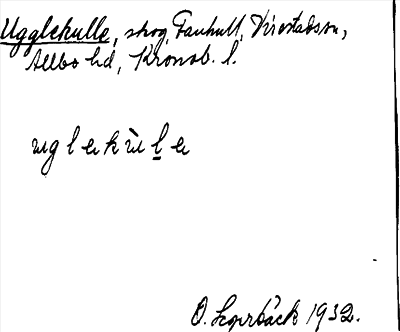 Ugglekulle, skog, Fanhult, Virestads sn,
Allbo hd, Kronob. l.
uglekùle
O. 1932.